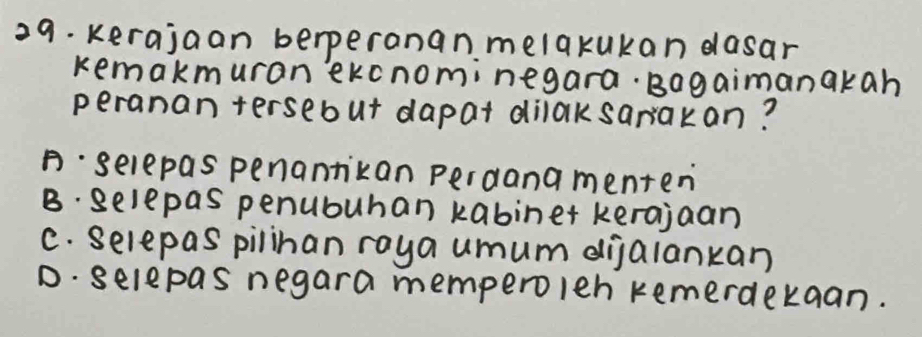 29. Kerajaan berperanan melakukan dasar
kemakmuran ekonomi negara. Bagaimanakah
peranan tersebut dapat dilaksanakan?
A. selepas penantikan Perdana menteri
B. selepas penubuhan kabinet kerajaan
C. selepas pilihan raya umum dijalankan
D. selepas negara memperoleh kemerdekaan.